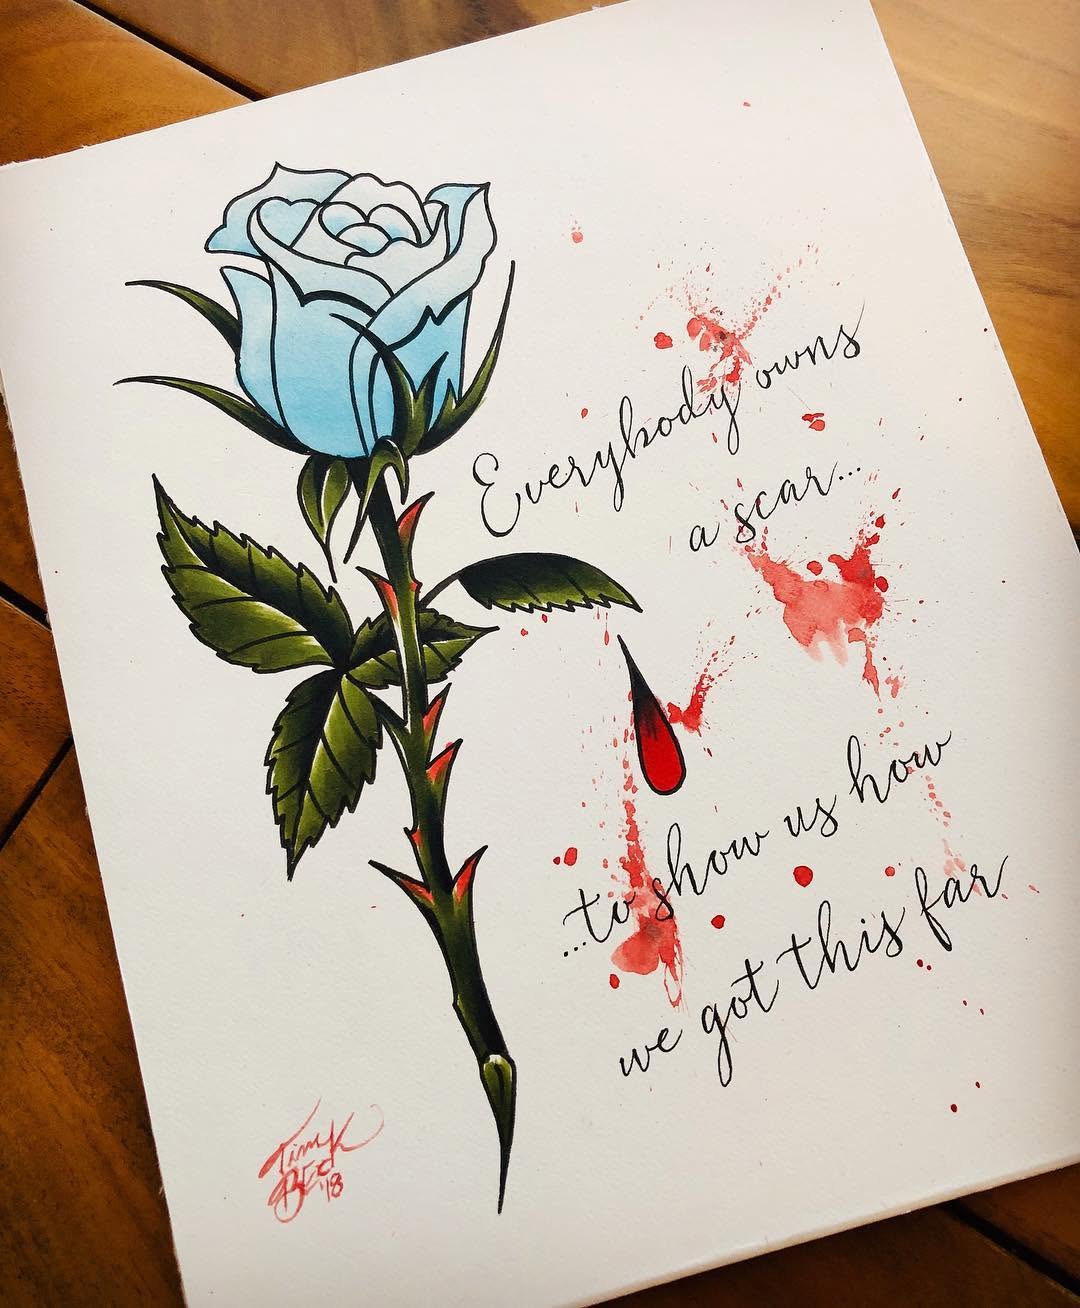 Everybody owns
a scar...
...to show us how
we got this far
Beck '18